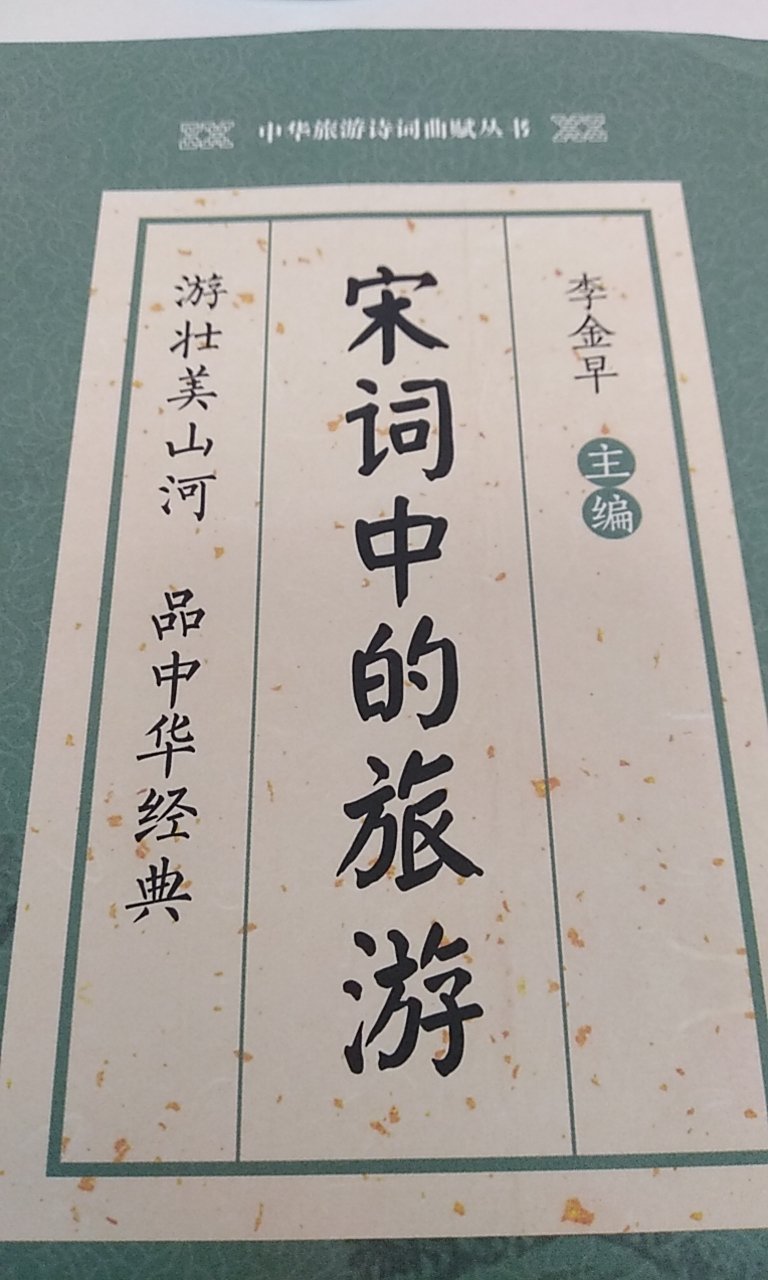 中华旅游诗词曲赋丛书
李金早 主编
宋词中的旅游
游壮美山河 品中华经典